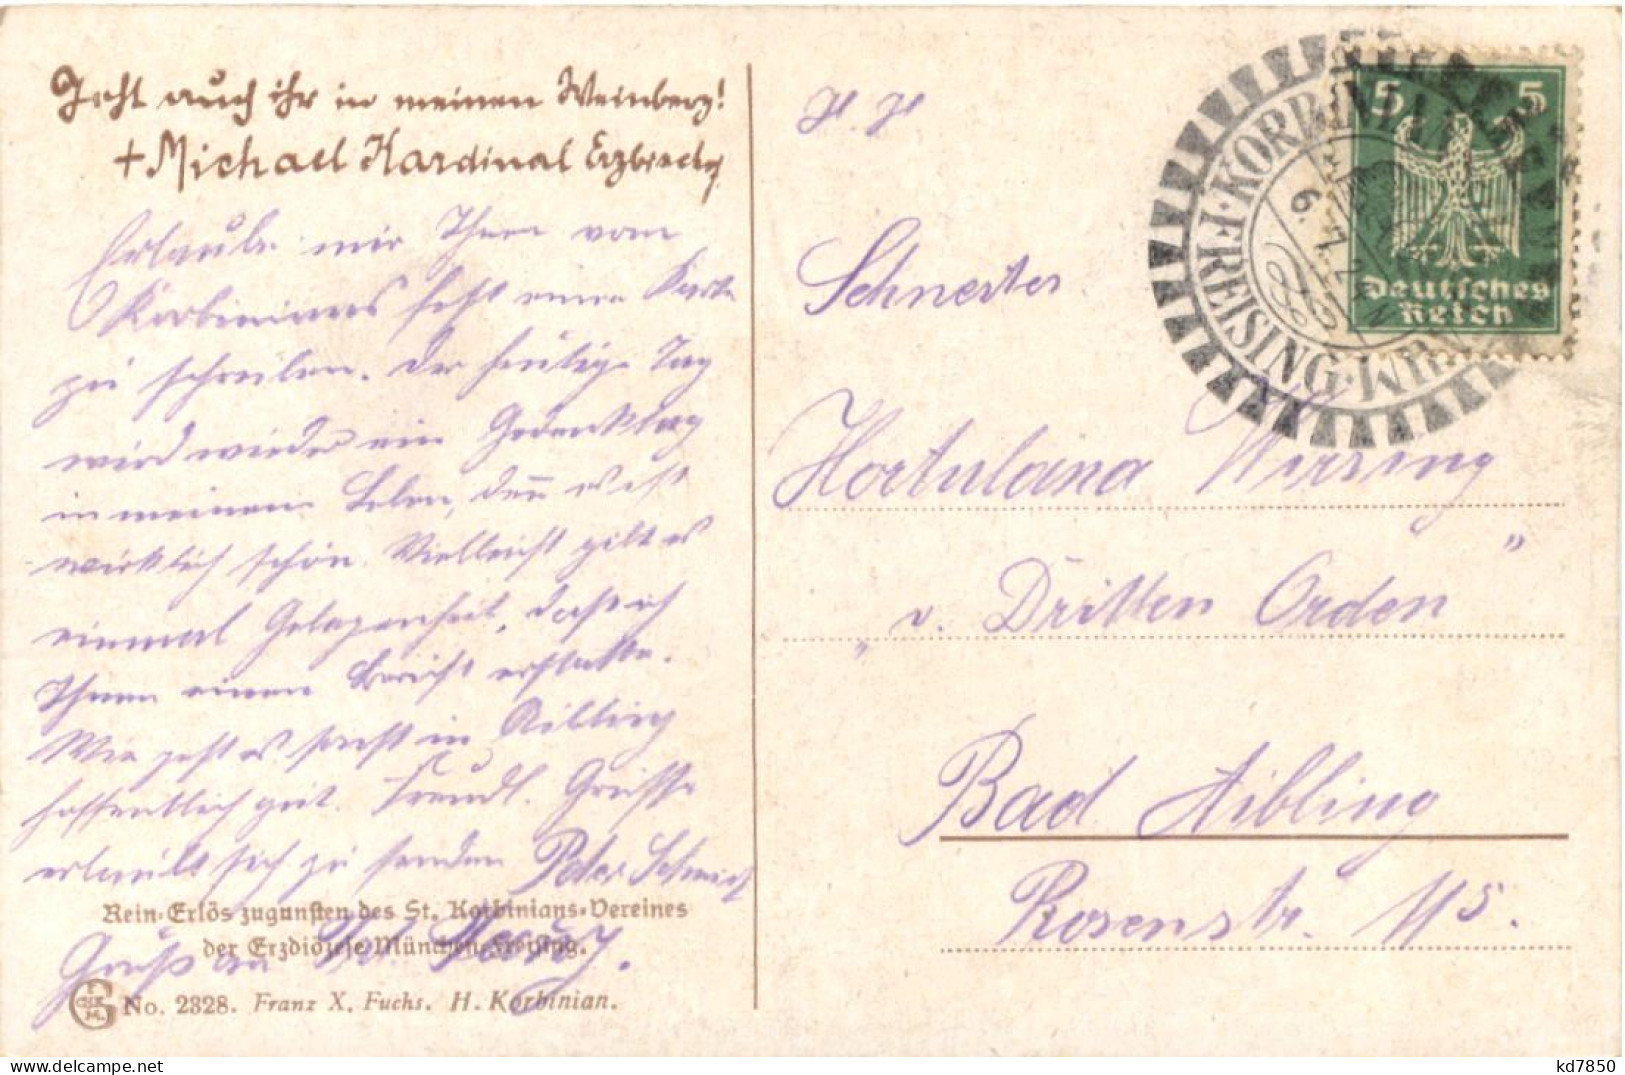 Geht auch ihr in meinen Weinberg!
+ Michael Kardinal Erzbischof
Erlaube mir Ihnen vom
Korbiniansfest eine Karte
zu schreiben. Der heutige Tag
wird wieder ein Gedenktag
in meinem Leben, denn es ist
wirklich schön. Vielleicht gilt es
einmal Gelegenheit, daß ich
Ihnen einen Bericht erstatte.
Wie geht es sonst in Aibling
hoffentlich gut. Freundl. Grüsse
erlaubt sich zu senden Peter Schmid
Gruß an
Rein-Erlös zugunsten des St. Korbinians-Vereines
der Erzdiözese München-Freising.
No. 2328. Franz X. Fuchs. H. Korbinian.
Schwester
Hortulana Wirsing
„v. Dritten Orden"
Bad Aibling
Rosenstr. 115.
5 5
Deutsches
Reich
FREISING · KORBINIAN
6. 7. 2
kd7850